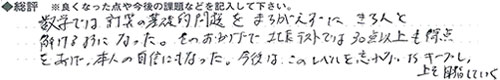 ◆総評 ※良くなった点や今後の課題などを記入して下さい。
数学では計算の基礎的問題をまちがえずにきちんと
解けるようになった。そのおかげで北辰テストでは30点以上も得点
をあげ、本人の自信にもなった。今後は、このレベルを忘れずにキープし、
上を目指していく